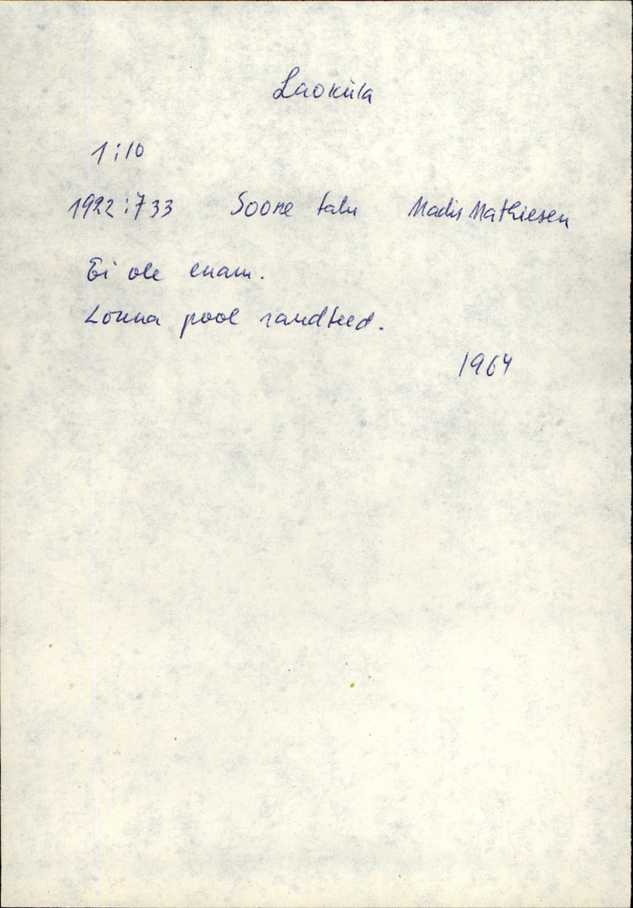 Laoküla
1:10
1922:733 Soone talu Madis Mathiesen
Ei ole enam.
Lõuna pool randteed.
1964